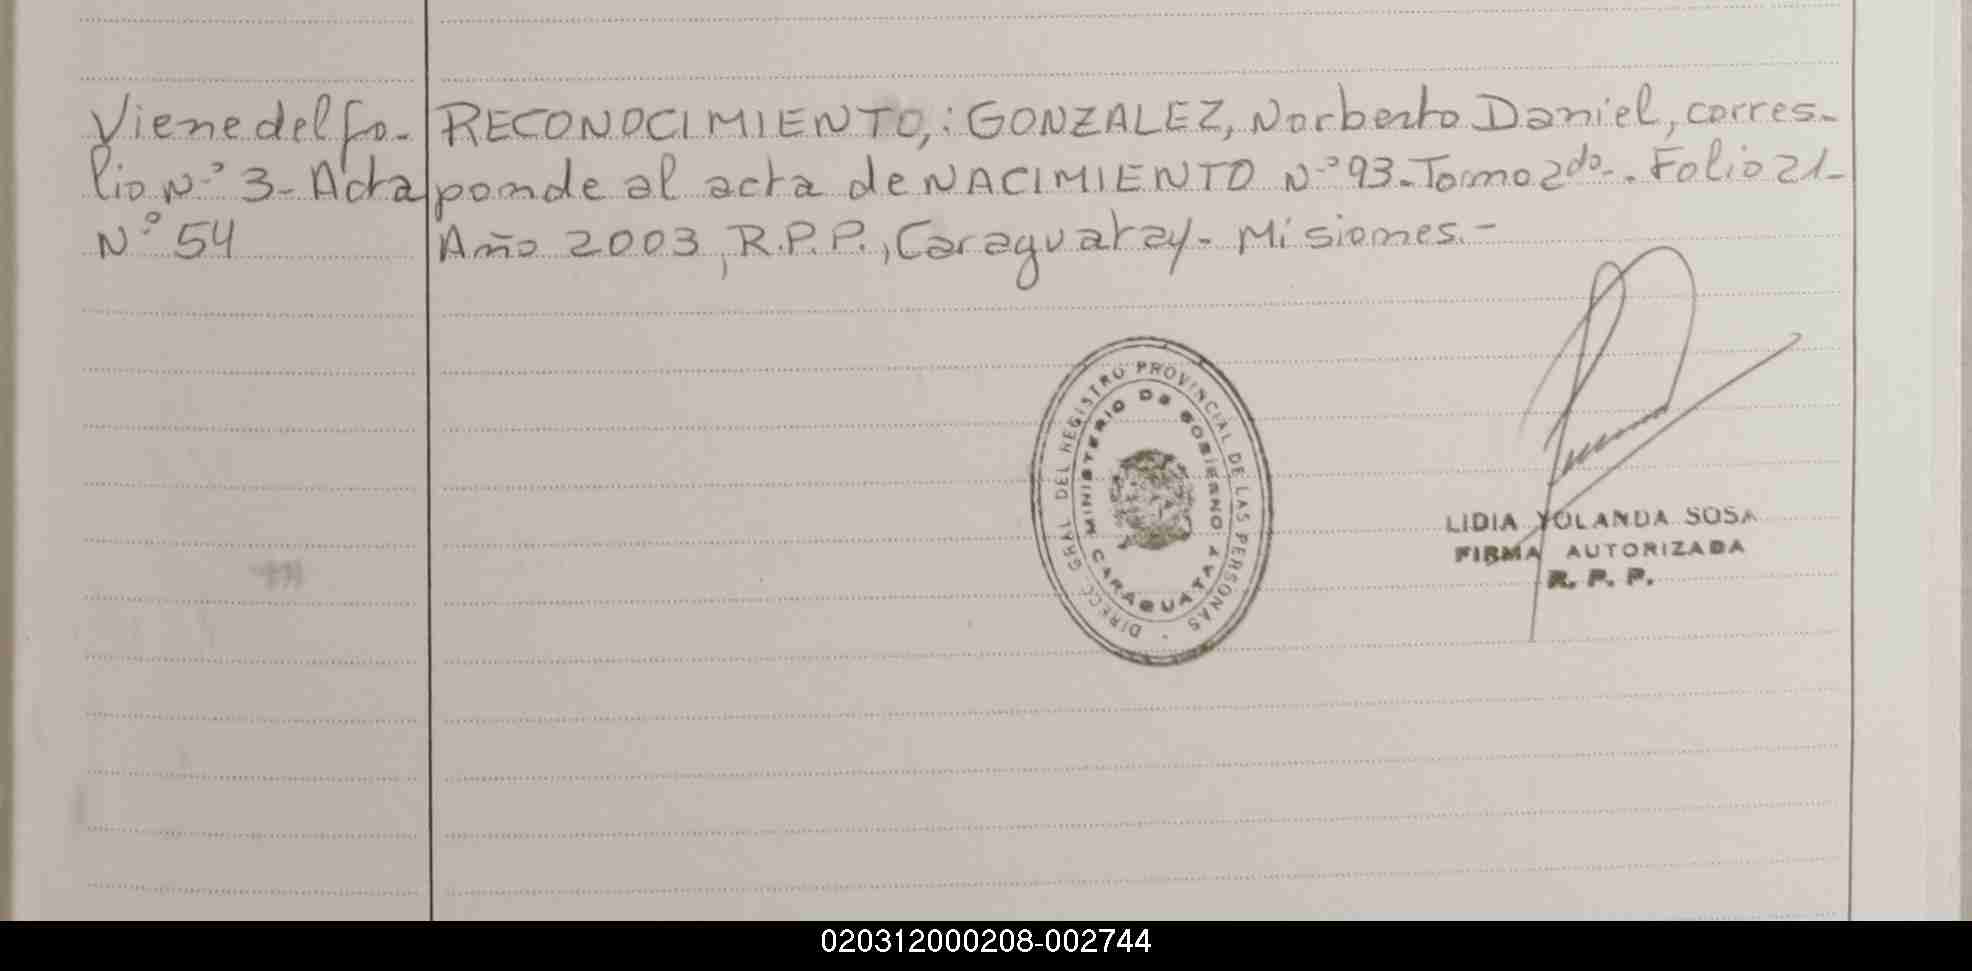 Viene del fo-
lio N° 3- Acta
N° 54
RECONOCIMIENTO,: GONZALEZ, Norberto Daniel, corres-
ponde al acta de NACIMIENTO N° 93-Tomo 2do-. Folio 21-
Año 2003, R.P.P., Caraguatay- Misiones.-
DIRECC. GRAL. DEL REGISTRO PROVINCIAL DE LAS PERSONAS
MINISTERIO DE GOBIERNO
CARAGUATAY
LIDIA YOLANDA SOSA
FIRMA AUTORIZADA
R. P. P.
020312000208-002744